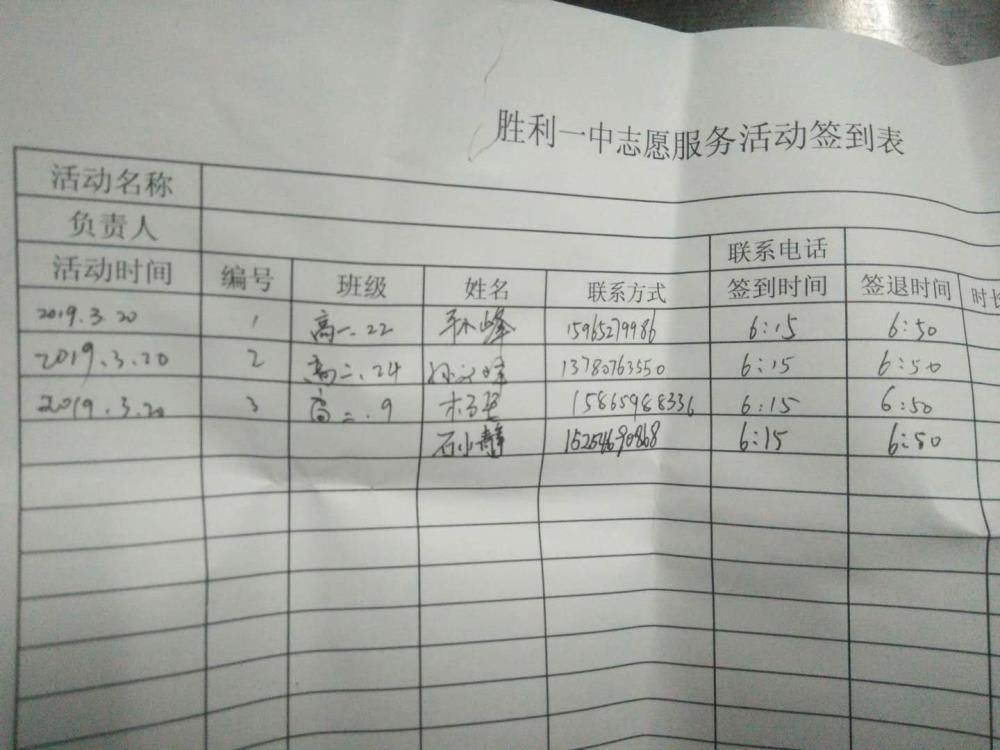 胜利一中志愿服务活动签到表
活动名称
负责人 联系电话
活动时间 编号 班级 姓名 联系方式 签到时间 签退时间 时长
2019.3.20 1 高一.22 峰 15965279986 6:15 6:50
2019.3.20 2 高二.24 13780763550 6:15 6:50
2019.3.20 3 高二.9 15865988336 6:15 6:50
石小静 15254690868 6:15 6:50